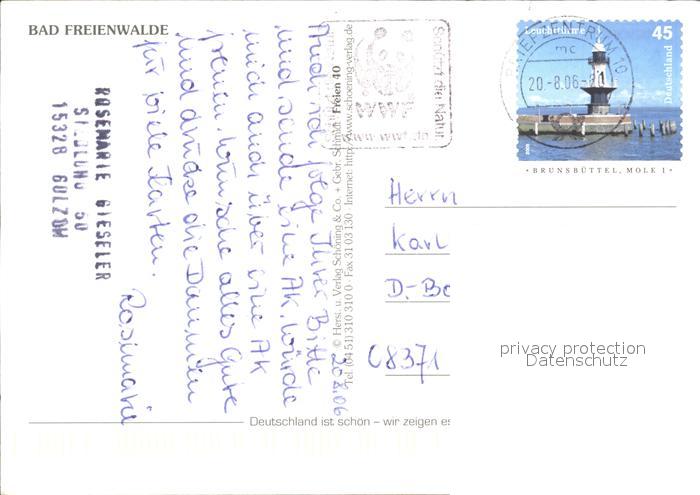 BAD FREIENWALDE
20.8.06
Auch ich folge Ihrer Bitte
und sende eine AK. Würde
mich auch über eine AK
freuen. Wünsche alles Gute
und drücke die Daumen
für viele Karten.
Rosimarie
ROSEMARIE GIESELER
SIEDLUNG 60
15328 GOLZOW
© Herst. u. Verlag Schöning & Co. + Gebr. Schmidt Freien 40
Tel. (04 51) 310 310 0 · Fax 31 03 130 · Internet: http://www.schoening-verlag.de
Schützt die Natur
WWF
www.wwf.de
BRIEFZENTRUM 10
mc
20.-8.06-
Leuchttürme
45
Deutschland
2005
· BRUNSBÜTTEL, MOLE 1 ·
Herrn
Karl
D.-Bo
08371
privacy protection
Datenschutz
Deutschland ist schön – wir zeigen es